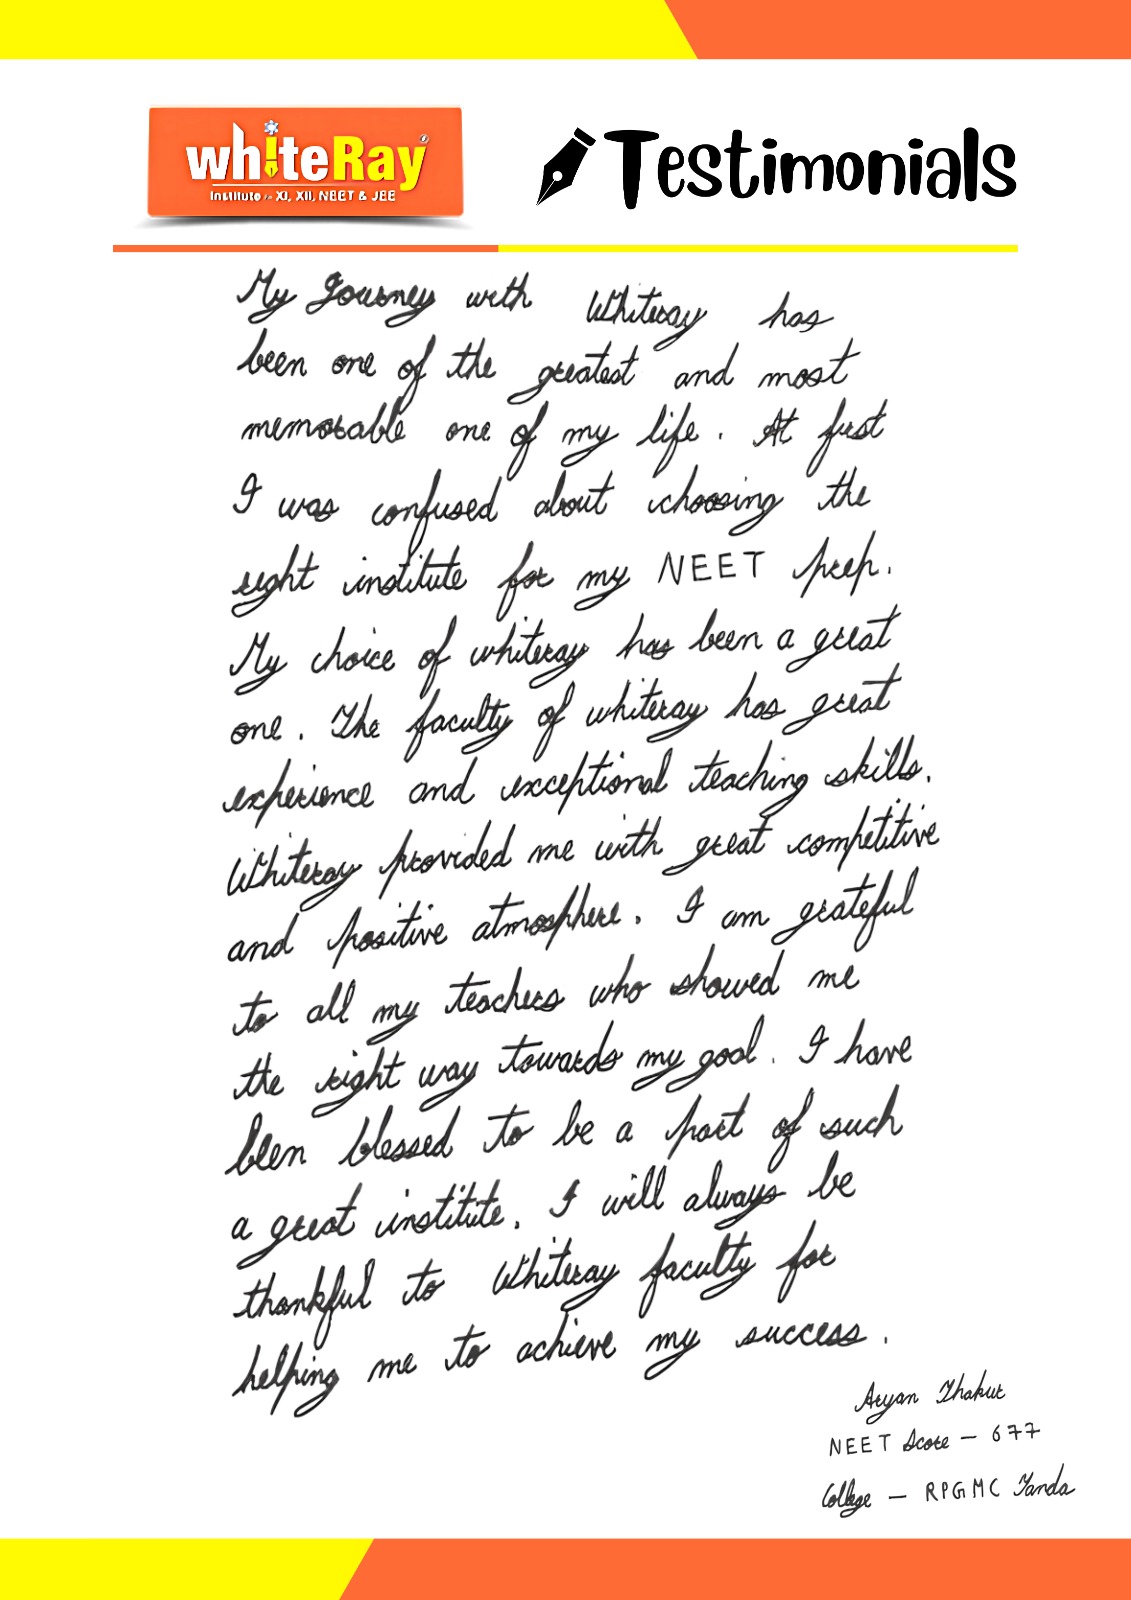 whiteRay
Institute for XI, XII, NEET & JEE
Testimonials
My Journey with Whiteray has
been one of the greatest and most
memorable one of my life. At first
I was confused about choosing the
right institute for my NEET prep.
My choice of whiteray has been a great
one. The faculty of whiteray has great
experience and exceptional teaching skills.
Whiteray provided me with great competitive
and positive atmosphere. I am grateful
to all my teachers who showed me
the right way towards my goal. I have
been blessed to be a part of such
a great institute. I will always be
thankful to Whiteray faculty for
helping me to achieve my success.
Aryan Thakur
NEET Score - 677
College - RPGMC Tanda